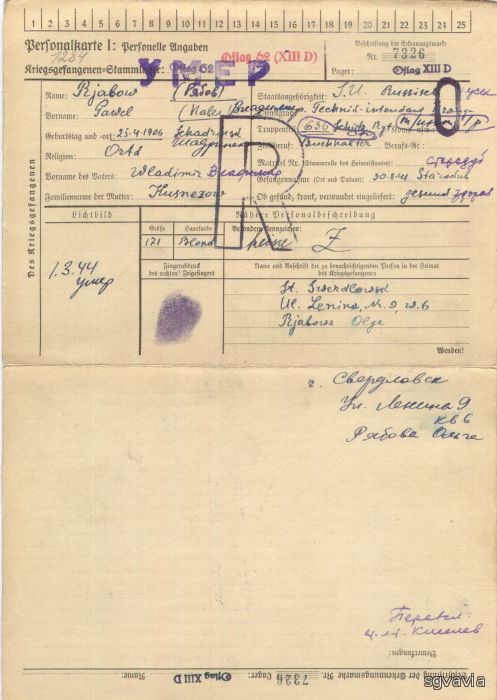 1 2 3 4 5 6 7 8 9 10 11 12 13 14 15 16 17 18 19 20 21 22 23 24 25
1284
Personalkarte I: Personelle Angaben
Oflag 62 (XIII D)
Beschriftung der Erkennungsmarke
Nr. 7326
Kriegsgefangenen-Stammlager: Oflag 62
УМЕР
Lager: Oflag XIII D
Des Kriegsgefangenen
Name: Rjabow (Рябов)
Staatsangehörigkeit: S.U. Russisch
Vorname: Pawel
Dienstgrad: Technik-intendant
Geburtstag und -ort: 25.4.1906 Schadrinsk
Truppenteil: 636 Schütz. Rgt.
Religion: Ortd
Zivilberuf: Buchhalter Berufs-Gr.:
Matrikel Nr. (Stammrolle des Heimatstaates):
Vorname des Vaters: Wladimir Владимир
Gefangennahme (Ort und Datum): 30.8.41 Starodub
Familienname der Mutter: Kusnezow
Ob gesund, krank, verwundet eingeliefert: gesund
R
Lichtbild
Nähere Personalbeschreibung
Größe Haarfarbe Besondere Kennzeichen:
171 Blond keine Z
1.3.44
умер
Fingerabdruck
des rechten! Zeigefingers
Name und Anschrift der zu benachrichtigenden Person in der Heimat
des Kriegsgefangenen
St. Swerdlowsk
Ul. Lenina, N. 9, w. 6
Rjabowa Olga
Wenden!
г. Свердловск
Ул. Ленина 9
кв 6
Рябова Ольга
Перевел:
Bemerkungen:
Beschriftung der Erkennungsmarke Nr. 7326 Lager: Oflag XIII D
sgvavia